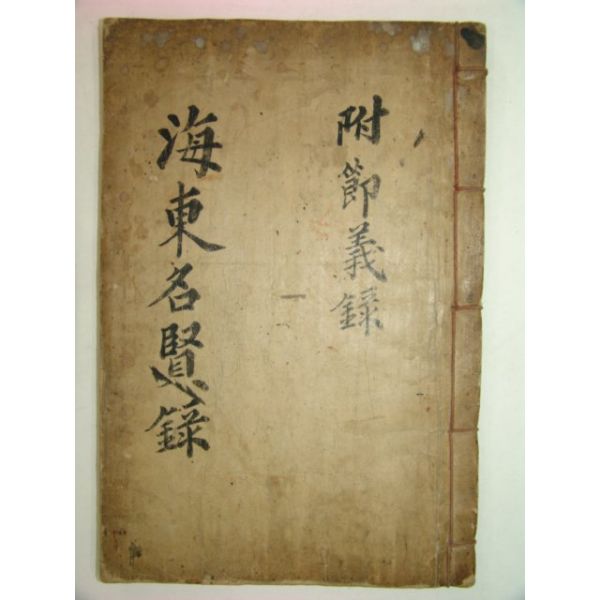 附節義錄
海東名賢錄